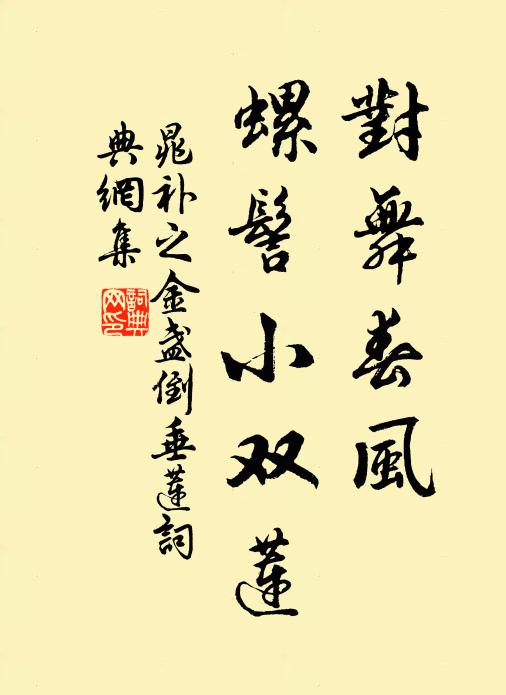 對舞春風
螺髻小双蓮
晁补之金盞倒垂蓮詞
典網集
詞典
网印